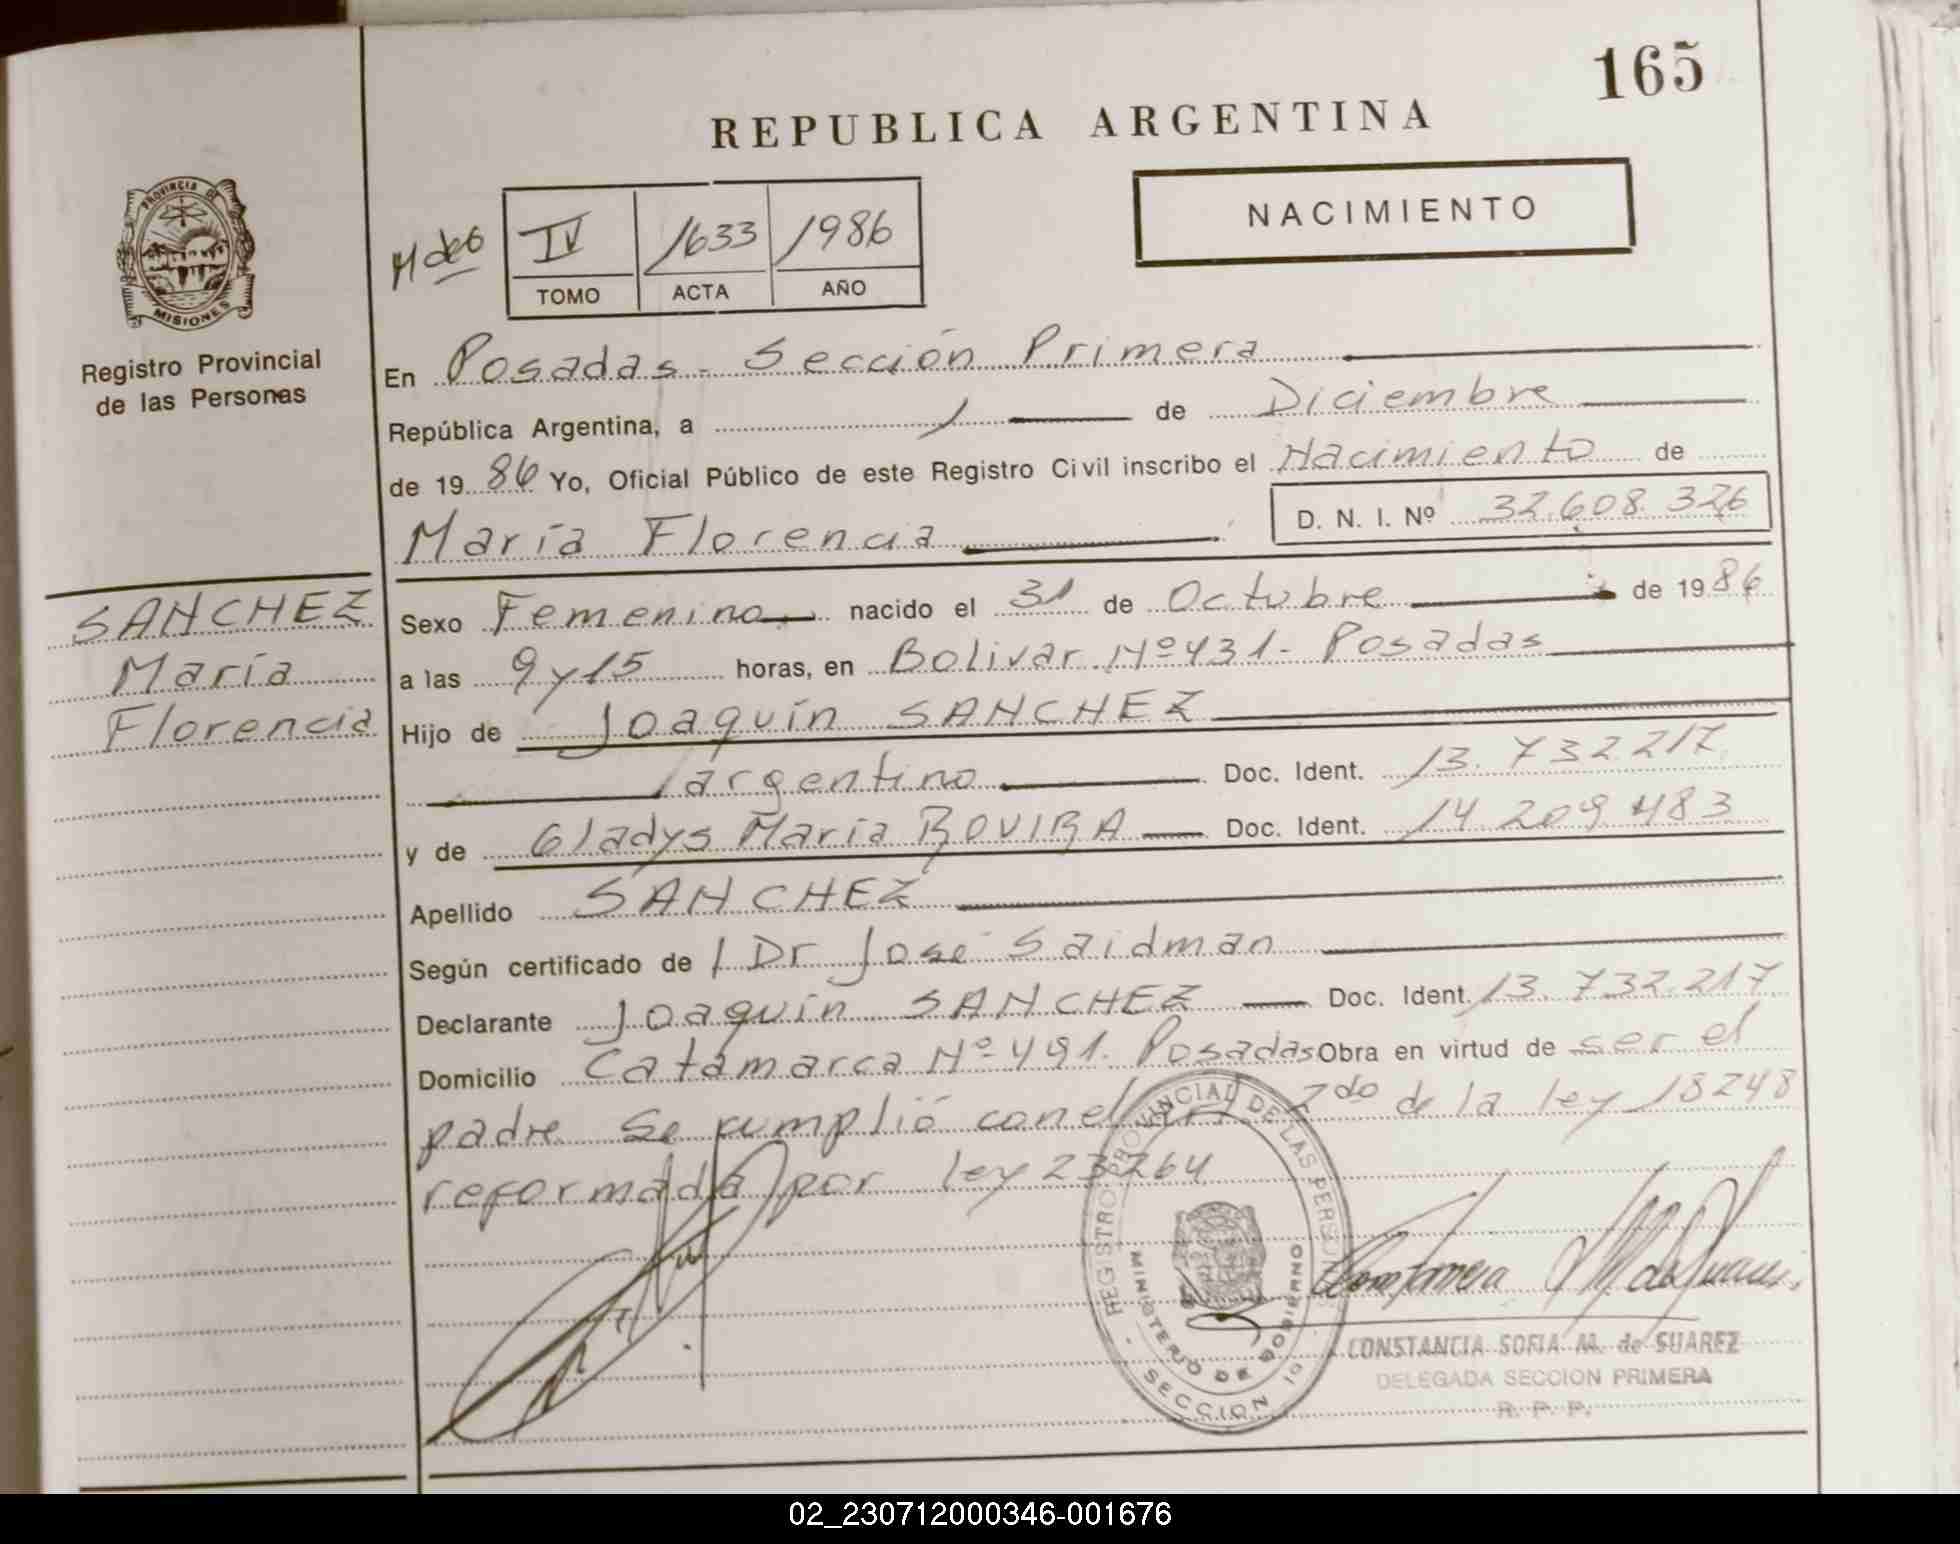 165
REPUBLICA ARGENTINA
NACIMIENTO
PROVINCIA DE
MISIONES
Registro Provincial
de las Personas
IV 1633 1986
TOMO ACTA AÑO
En Posadas - Sección Primera
República Argentina, a 1 de Diciembre
de 1986 Yo, Oficial Público de este Registro Civil inscribo el Nacimiento de
D. N. I. Nº 32.608.326
María Florencia
SANCHEZ
María
Florencia
Sexo Femenino nacido el 31 de Octubre de 1986
a las 9 y 15 horas, en Bolivar Nº 431 - Posadas
Hijo de Joaquín SANCHEZ
argentino Doc. Ident. 13.732.217
y de Gladys María ROVIRA Doc. Ident. 14.209.483
Apellido SANCHEZ
Según certificado de Dr José Saidman
Declarante Joaquín SANCHEZ Doc. Ident. 13.732.217
Domicilio Catamarca Nº 491. Posadas Obra en virtud de ser el
padre se cumplió con el art. 2do de la ley 18248
reformada por ley 23264
REGISTRO PROVINCIAL DE LAS PERSONAS
MINISTERIO DE GOBIERNO
SECCION 1º
CONSTANCIA SOFIA M. de SUAREZ
DELEGADA SECCION PRIMERA
R. P. P.
02_230712000346-001676